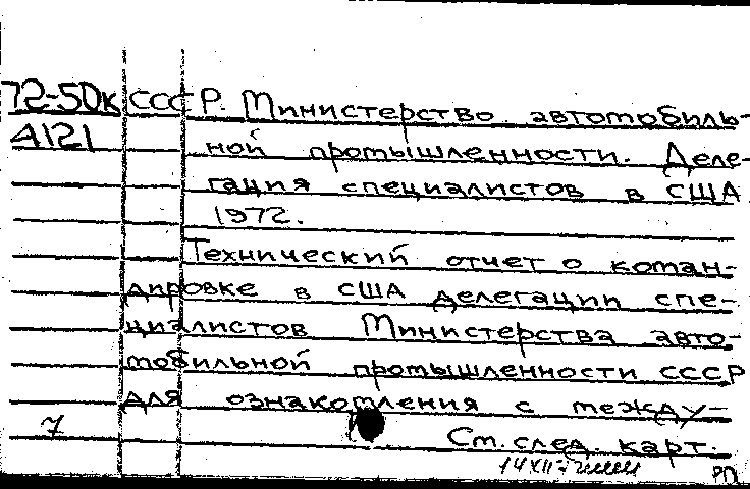 72-50к СССР. Министерство автомобиль-
А121 ной промышленности. Деле-
гация специалистов в США
1972.
Технический отчет о коман-
дировке в США делегации спе-
циалистов Министерства авто-
мобильной промышленности СССР
для ознакомления с между-
7 См. след. карт.
РП